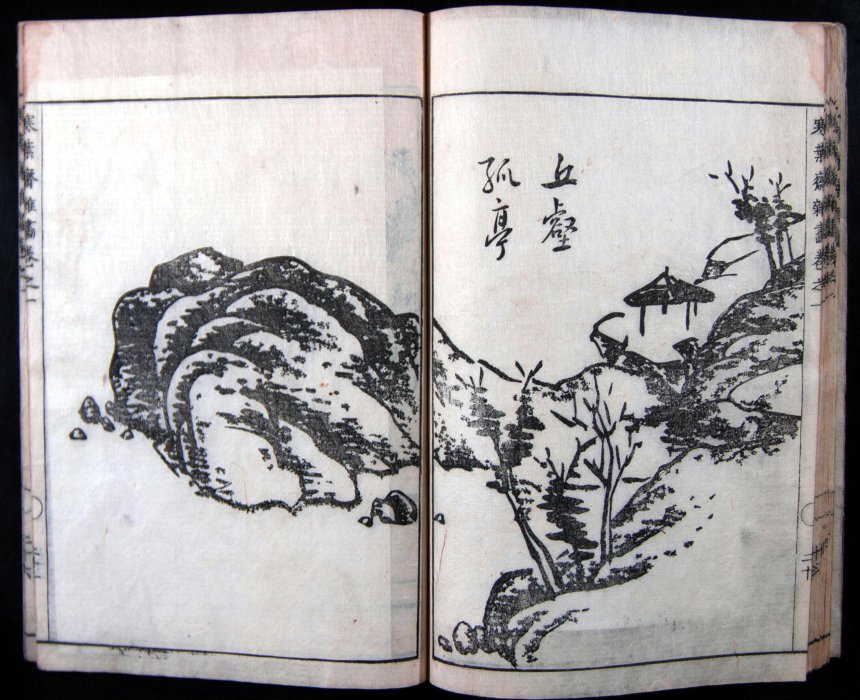 丘壑
孤亭
寒葉齋雜畵卷之一
寒葉齋雜畵卷之一